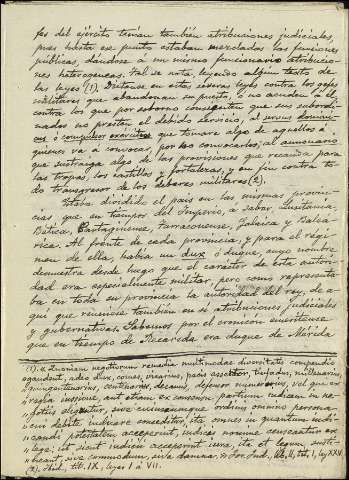 fes del ejército tenían también atribuciones judiciales,
pues hasta ese punto estaban mezcladas las funciones
públicas, dándose á un mismo funcionario atribucio-
nes heterogeneas. Tal se nota, leyendo algun texto de
las leyes (1). Díctanse en éstas severas leyes contra los jefes
militares que abandonan su puesto, y no acuden á él,
contra los que por soborno consienten que sus subordi-
nados no presten el debido servicio, al
ó compulsor exércitus que tomare algo de aquellos á
quienes va á convocar, por no convocarlos; al annonario
que sustraiga algo de las provisiones que recauda para
las tropas, los castillos y fortalezas, y en fin contra to-
do transgresor de los deberes militares (2).
Estaba dividido el pais en las mismas provin-
cias que en tiempos del Imperio, á saber, Lusitania,
Bética, Cartaginense, Tarraconense, Galaica y Balea-
rica. Al frente de cada provincia, y para el régi-
men de ella, había un dux ó duque, cuyo nombre
demuestra desde luego que el carácter de esta autori-
dad era especialmente militar, pero como representa-
ba en toda su provincia la autoridad del rey, de a-
quí que reuniese tambien en sí atribuciones judiciales
y gubernativas. Sabemos por el cronicón emeritense
que en tiempo de Recaredo era duque de Mérida
(1). "Quoniam negotiorum remedia multimodae diversitatis compendio
gaudent, adeo dux, comes, vicarius, pacis assertor, tiufadus, millenarius,
quingentenarius, centenarius, decanus, defensor, numerarius, vel qui ex
regia iussione, aut etiam ex consensu partium iudices in ne-
gotiis eliguntur, sive cuiuscumque ordinis omnino persona
cui debite iudicare conceditur, ita omnes in quantum iudi-
candi potestatem acceperint, iudicis nomine censeantur ex
lege; ut sicut iudicii acceperint iura, ita et legum susti-
neant sive commodum, sive damna." For. Jud., lib. II, tit. I, ley XXV.
(2). Ibid., tit. IX, leyes I á VII.